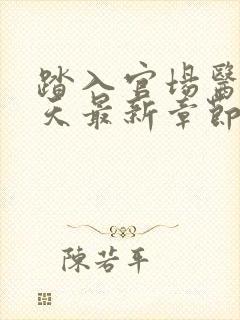 踏入官場醫
天最新章節
陳若平